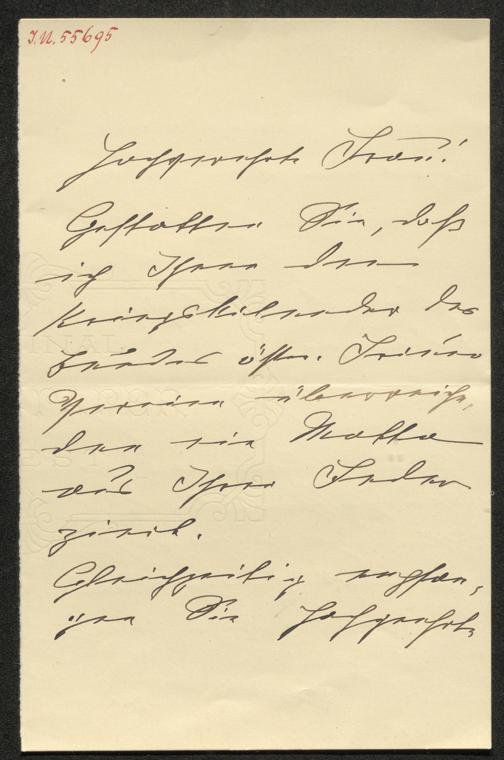 I.N. 55695
Hochgeehrte Frau!
Gestatten Sie, daß
ich Ihnen den
Kriegskalender des
Bundes öster. Frauen
Vereine überreiche,
den ein Motto
aus Ihrer Feder
ziert.
Gleichzeitig empfan-
gen Sie hochgeehrte